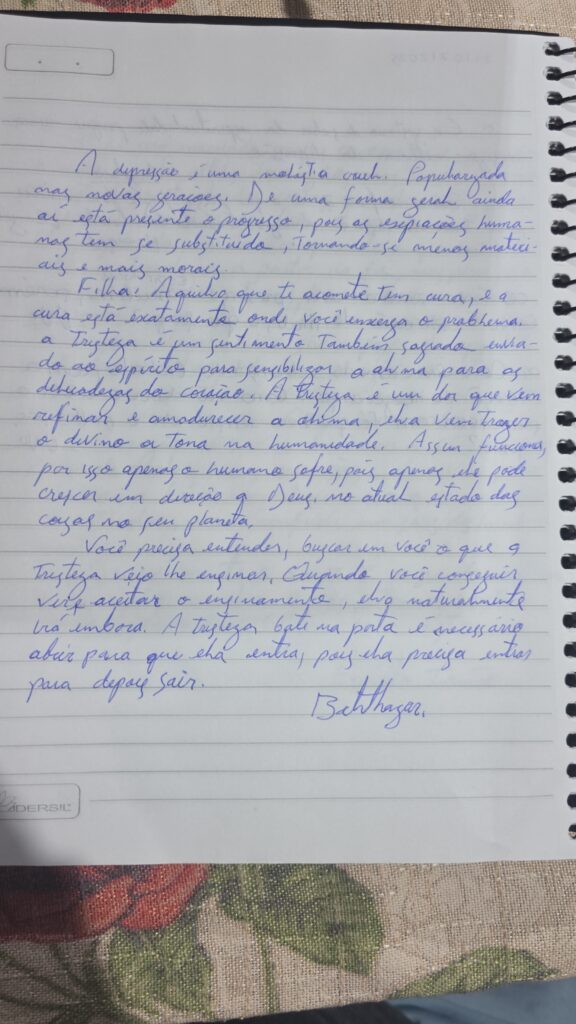 A depressão é uma moléstia cruel. Popularizada
nas novas gerações. De uma forma geral ainda
aí está presente o progresso, pois as expiações huma-
nas tem se substituído, tornando-se menos materi-
ais e mais morais.
Filha! Aquilo que te acomete tem cura, e a
cura está exatamente onde você enxerga o problema.
a Tristeza é um sentimento também sagrado envia-
do ao espírito para sensibilizar a alma para as
delicadezas do coração. A tristeza é um dor que vem
refinar e amadurecer a alma, ela vem trazer
o divino a tona na humanidade. Assim funciona,
por isso apenas o humano sofre, pois apenas ele pode
crescer em direção a Deus. no atual estado das
coisas no seu planeta.
Você precisa entender, buscar em você o que a
Tristeza veio lhe ensinar. Quando, você conseguir
aceitar o ensinamento, ela naturalmente
irá embora. A tristeza bate na porta é necessário
abrir para que ela entra, pois ela precisa entrar
para depois sair.
Balthazar.
CADERSIL